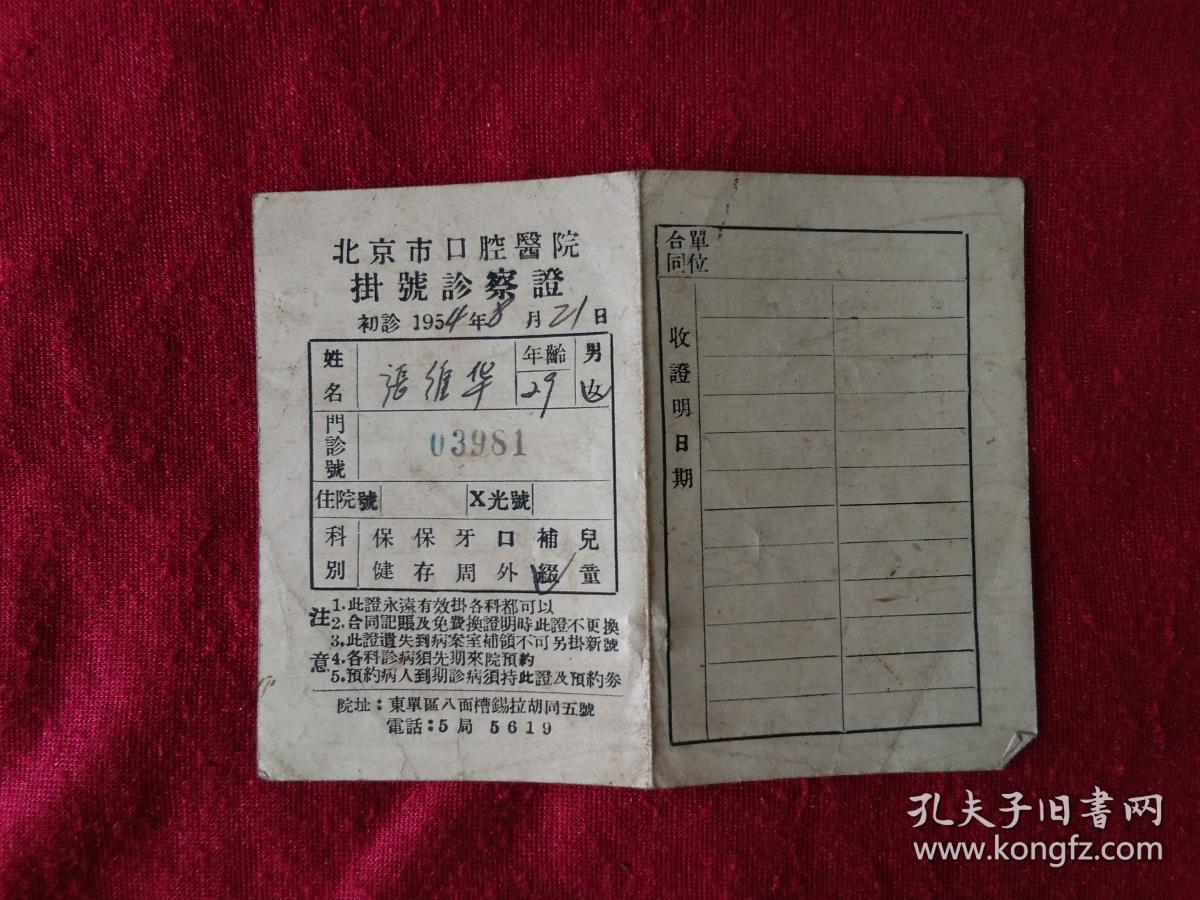 北京市口腔醫院
掛號診察證
初診 1954年8月21日
姓名 張維华 年齡 29 男 女
門診號 03981
住院號 X光號
科別 保健 保存 牙周 口外 補綴 兒童
注意
1.此證永遠有效掛各科都可以
2.合同記賬及免費換證明時此證不更換
3.此證遺失到病案室補領不可另掛新號
4.各科診病須先期來院預約
5.預約病人到期診病須持此證及預約券
院址：東單區八面槽錫拉胡同五號
電話：5局 5619
合同單位
收證明日期
孔夫子旧書网
www.kongfz.com